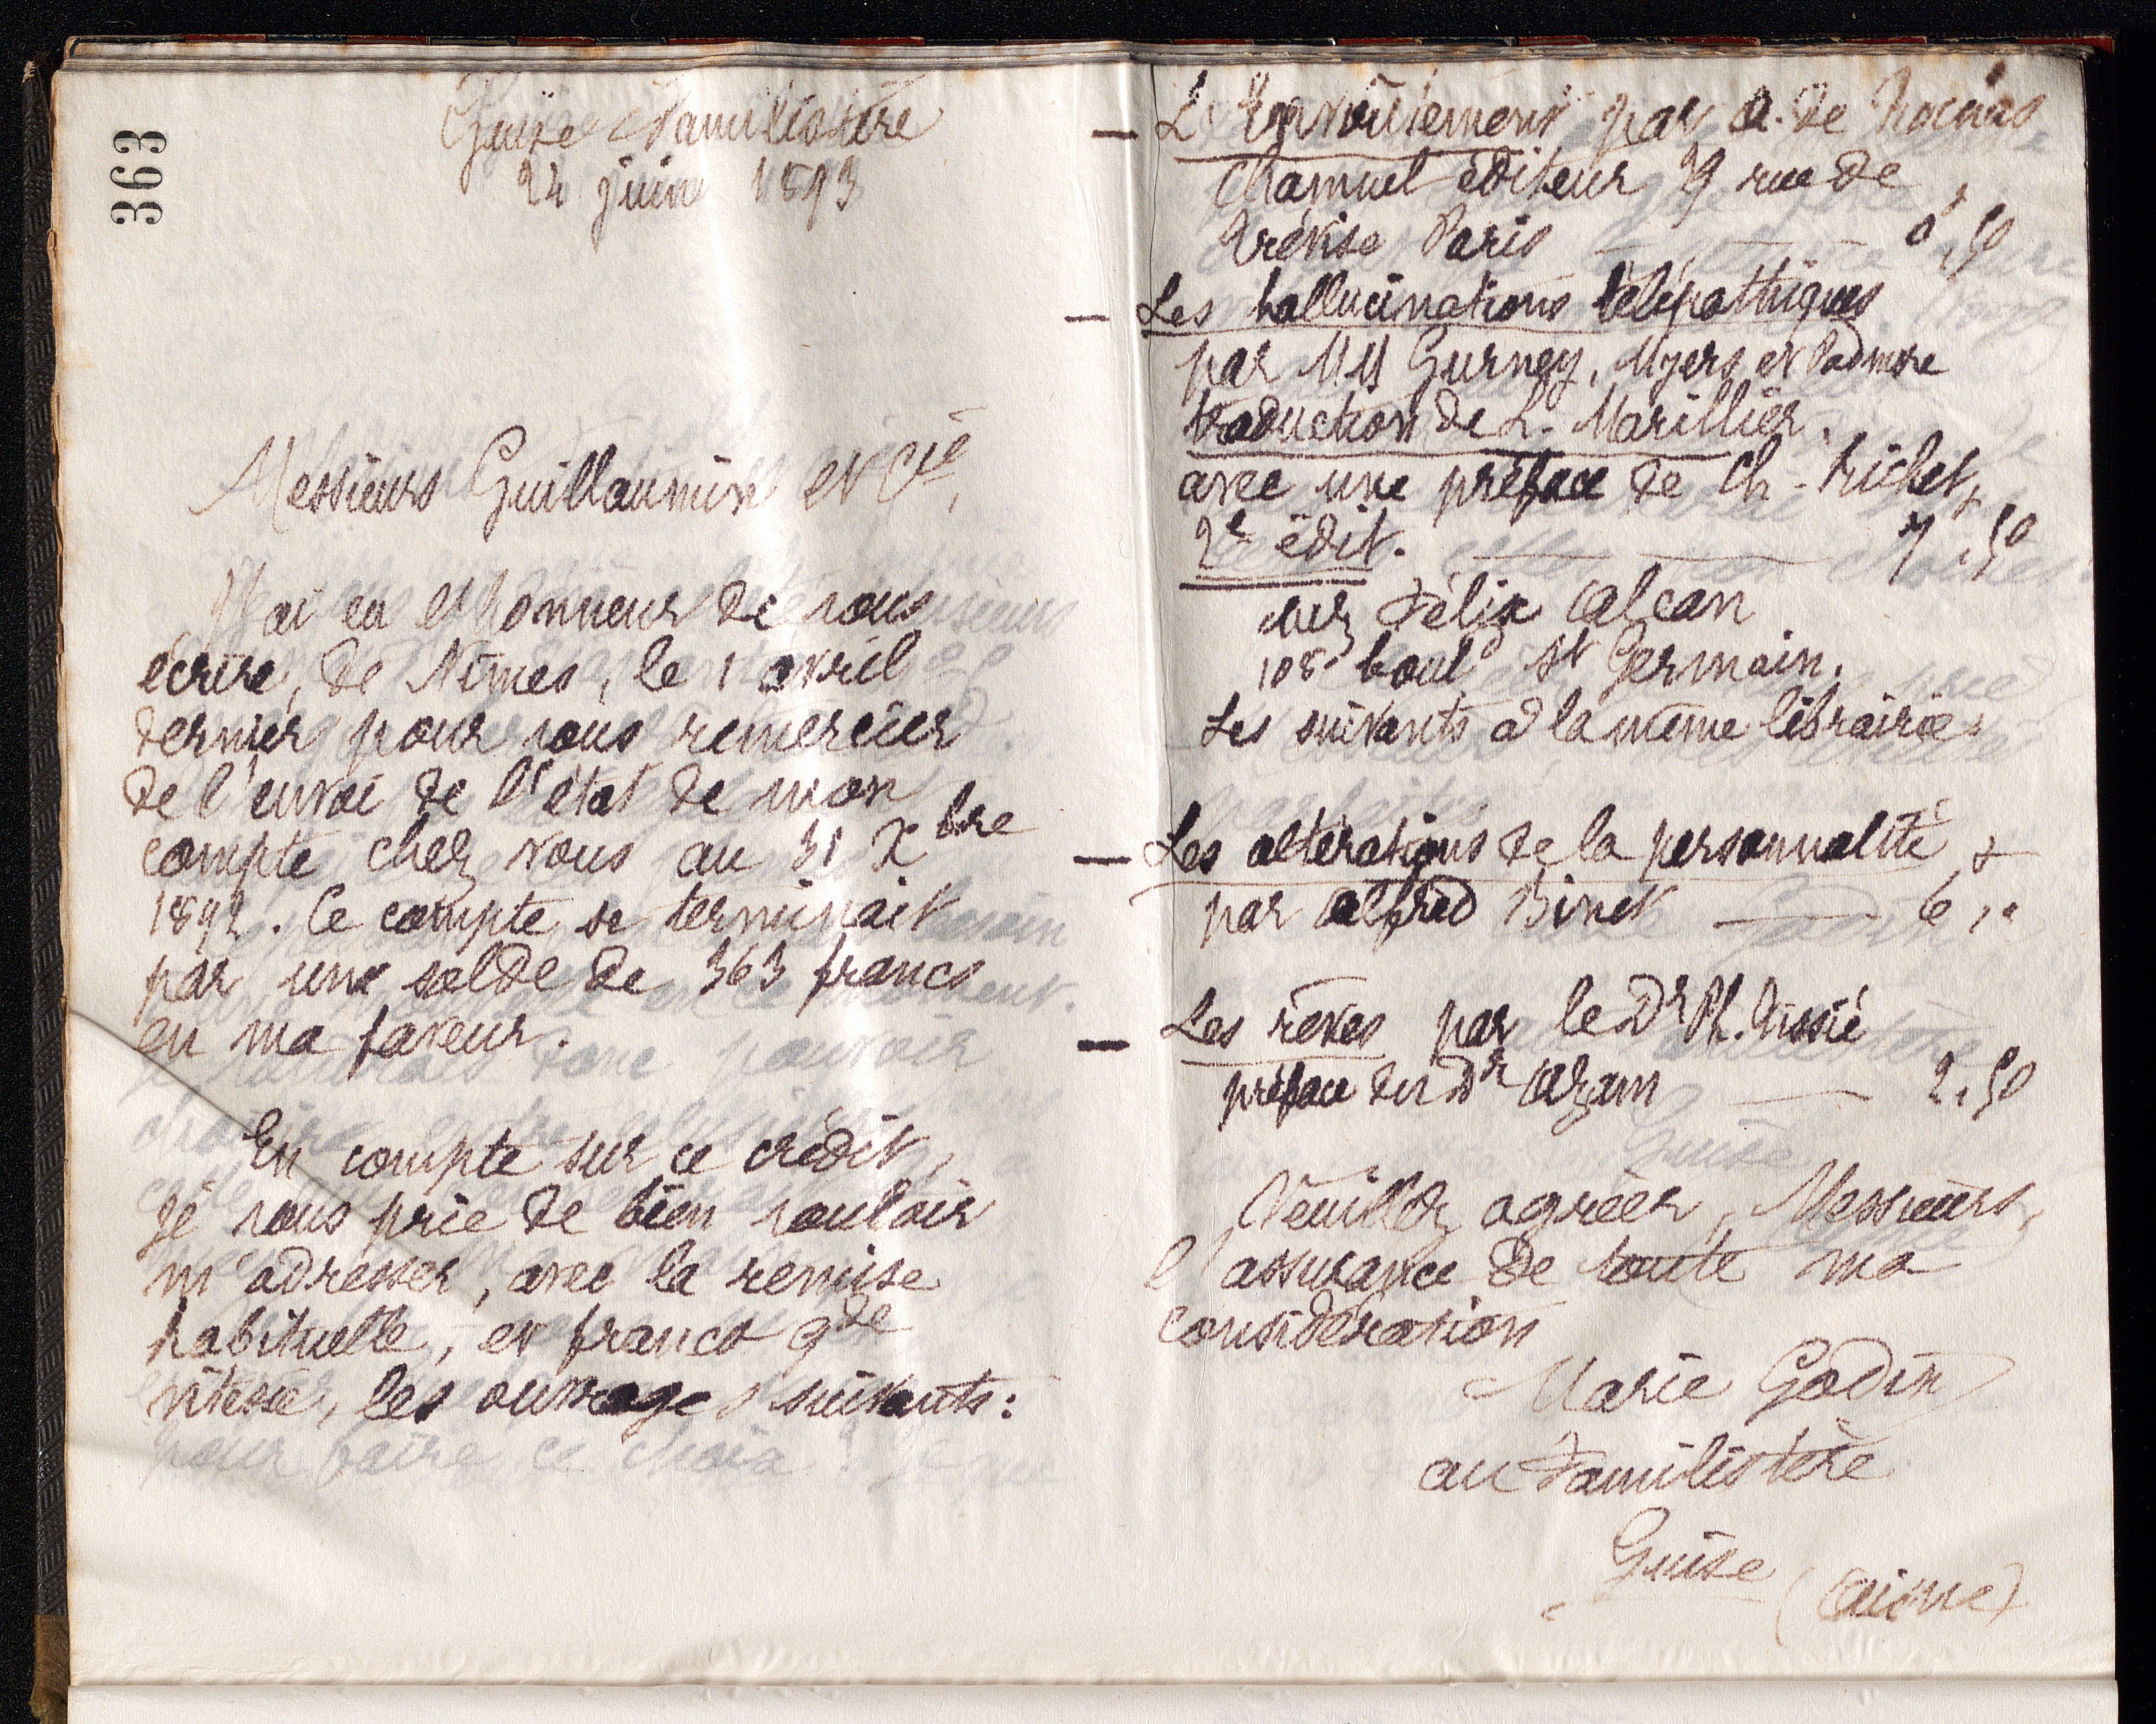 363
Guise Familistère
24 juin 1893
Messieurs Guillaumin et Cie,
J'ai eu l'honneur de vous
écrire, de Nîmes, le 1 avril
dernier pour vous remercier
de l'envoi de l'état de mon
compte chez vous au 31 Xbre
1892. Ce compte se terminait
par une solde de 363 francs
en ma faveur.
En compte sur ce crédit,
je vous prie de bien vouloir
m'adresser, avec la remise
habituelle, et franco gde
vitesse, les ouvrages suivants:
— L'Envoûtement par A. de Rochas
Chamuel éditeur 29 rue de
Trévise Paris — 0,50
— Les hallucinations télépathiques
par MM Gurney, Myers et Podmore
traduction de L. Marillier.
avec une préface de Ch. Richet,
2e édit. — 7,50
chez Félix Alcan
108 bould St Germain.
Les suivants à la même librairie.
— Les altérations de la personnalité
par Alfred Binet — 6,"
— Les rêves par le Dr Ph. Tissié
préface du Dr Azam — 2,50
Veuillez agréer, Messieurs,
l'assurance de toute ma
considération
Marie Godin
au Familistère
Guise (Aisne)